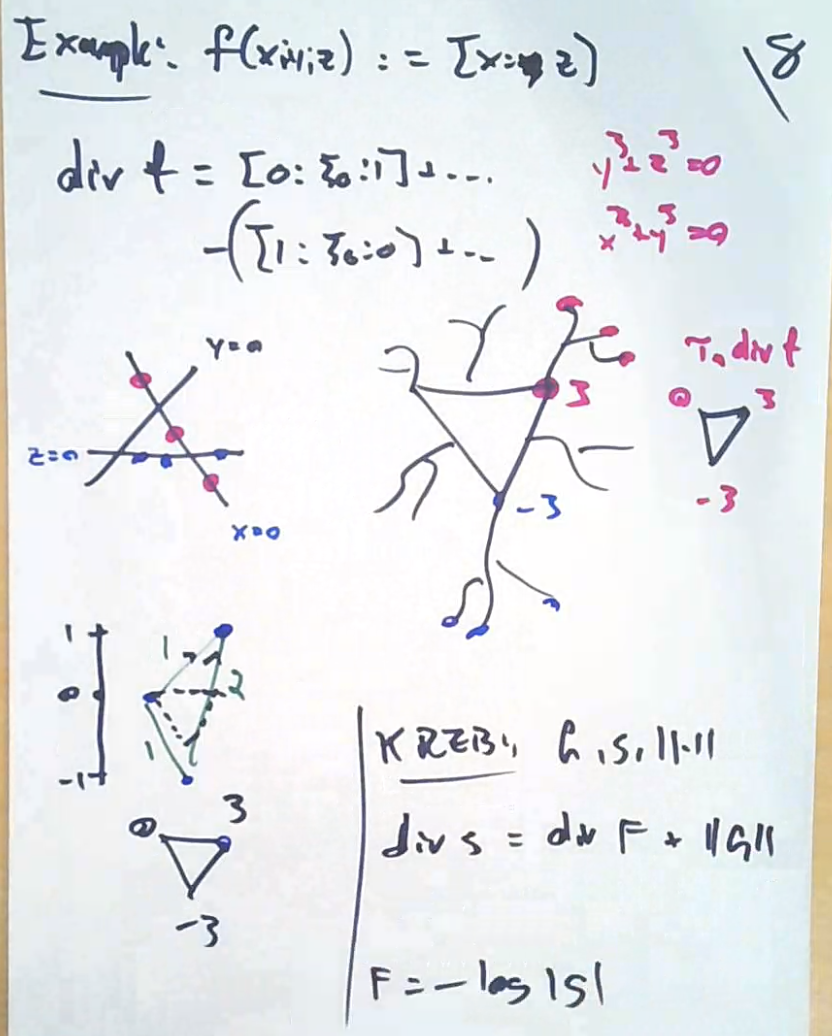 Example: f(x:y:z) := [x: z]
8
div f = [0: ξ₀:1] + ...
-([1: ξ₀:0] + ...)
y³+z³=0
x³+y³=0
y=0
z=0
x=0
3
-3
τ* div f
0 3
-3
1
0
-1
1
2
1
0 3
-3
KRZB: , s, ||·||
div s = div F + ||G||
F = -log |s|